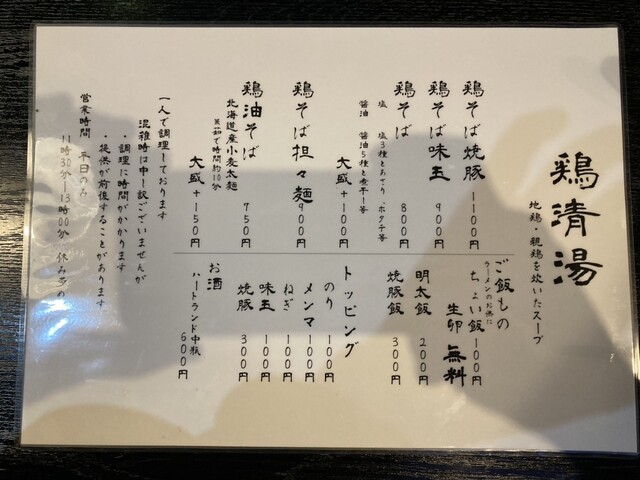 鶏清湯
地鶏・親鶏を炊いたスープ
鶏そば焼豚 1100円
鶏そば味玉 900円
鶏そば 800円
塩 塩3種とあさり、ホタテ等
醤油 醤油5種と煮干し等
大盛 +100円
鶏そば担々麺 900円
鶏油そば 750円
北海道産小麦太麺
茹で時間約10分
大盛 +150円
一人で調理しております
混雑時は申し訳ございませんが
・調理に時間がかかります
・提供が前後することがあります
営業時間 平日のみ
11時30分ー13時00分 休み多め
ご飯もの
ラーメンのお供に
ちょい飯 100円
生卵 無料
明太飯 200円
焼豚飯 300円
トッピング
のり 100円
メンマ 100円
ねぎ 100円
味玉 100円
焼豚 300円
お酒
ハートランド中瓶 600円